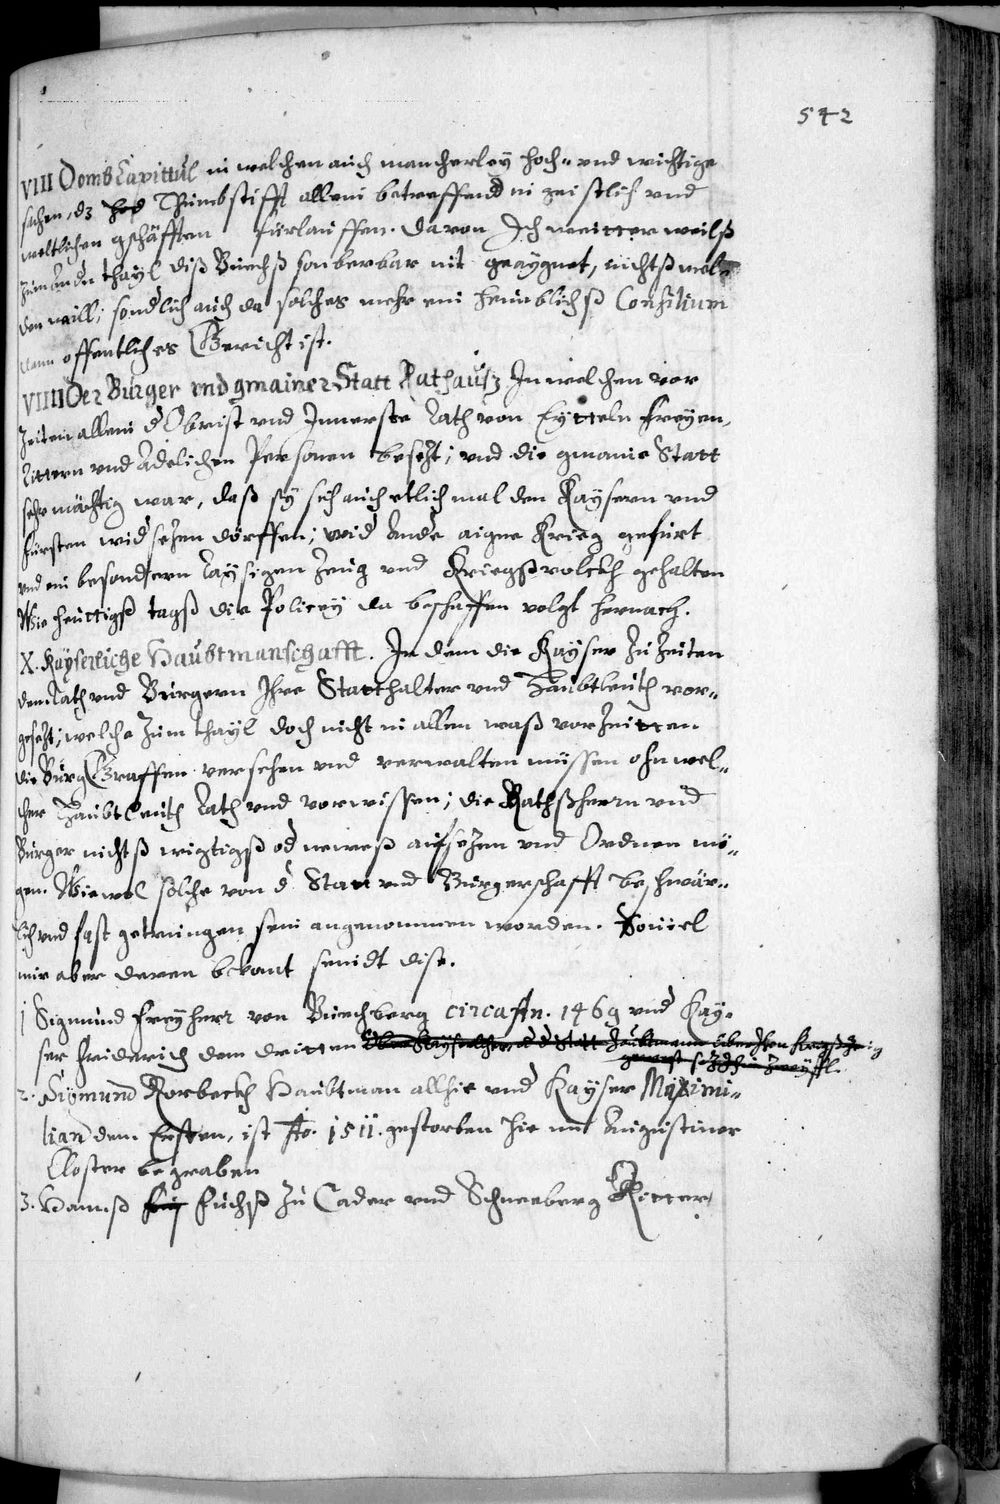 542
VIII DombCapittul in welchen auch mancherleÿ hoch- und wichtige
sachen, dz Thumbstifft allein betreffend in geistlich und
weltlichen gschäfften fürlauffen. davon Ich weitter weilß
zum andn thayl diß Buechß sonderbar nit geaygnet, nichtß mel-
den will; sondlich auch da solches mehr ein heimblichß Consilium
dann offentliches Gericht ist.
VIIII Der Burger vnd gmainer Statt Rathauß Inwelchen vor
Zeiten allein d Obrist und Innerste Rath von Eytteln freyen,
Rittern und Adelichen Personen besezt; und die gmaine Statt
sehr mächtig war, daß sÿ sich auch etlich mal den Kaysern und
fürsten wid sezen dörffen; wid Ande aigne Krieg gefürt
und ein besondern Raysigen Zeug und Kriegßvolckh gehalten
Wie heuttigß tagß die Policeÿ da beschaffen volgt hernach.
X. Kaÿserliche Haubtmanschafft. In dem die Kayser Zu Zeiten
dem Rath und Burgern Ihre Statthalter und Haubtleuth vor-
gesezt; welche zum thayl doch nicht in allem waß vorzeitten
die BurgGraffen versehen und verwalten müssen ohn wel-
cher Haubtleuth Rath und vorwissen; die Rathßherrn und
Burger nichtß wigtigß od neweß aufsezen und Ordnen mö-
gen. Wiewol solche von d Statt und Burgerschafft beschwär-
lich und fast getrungen sein angenommen worden. Souiel
mir aber deren bekant seindt dise.
1 Sigmund Freÿherr von Buechberg circa An. 1469 und Kaÿ-
ser Friderich dem dritten
2. Sigmund Rorbeckh Haubtman allhie und Kayser Maximi-
lian dem Ersten, ist Ao. 1511. gestorben hie im Augustiner
Closter begraben
3. Hannß Fuchß zu Cader und Schneeberg Ritter